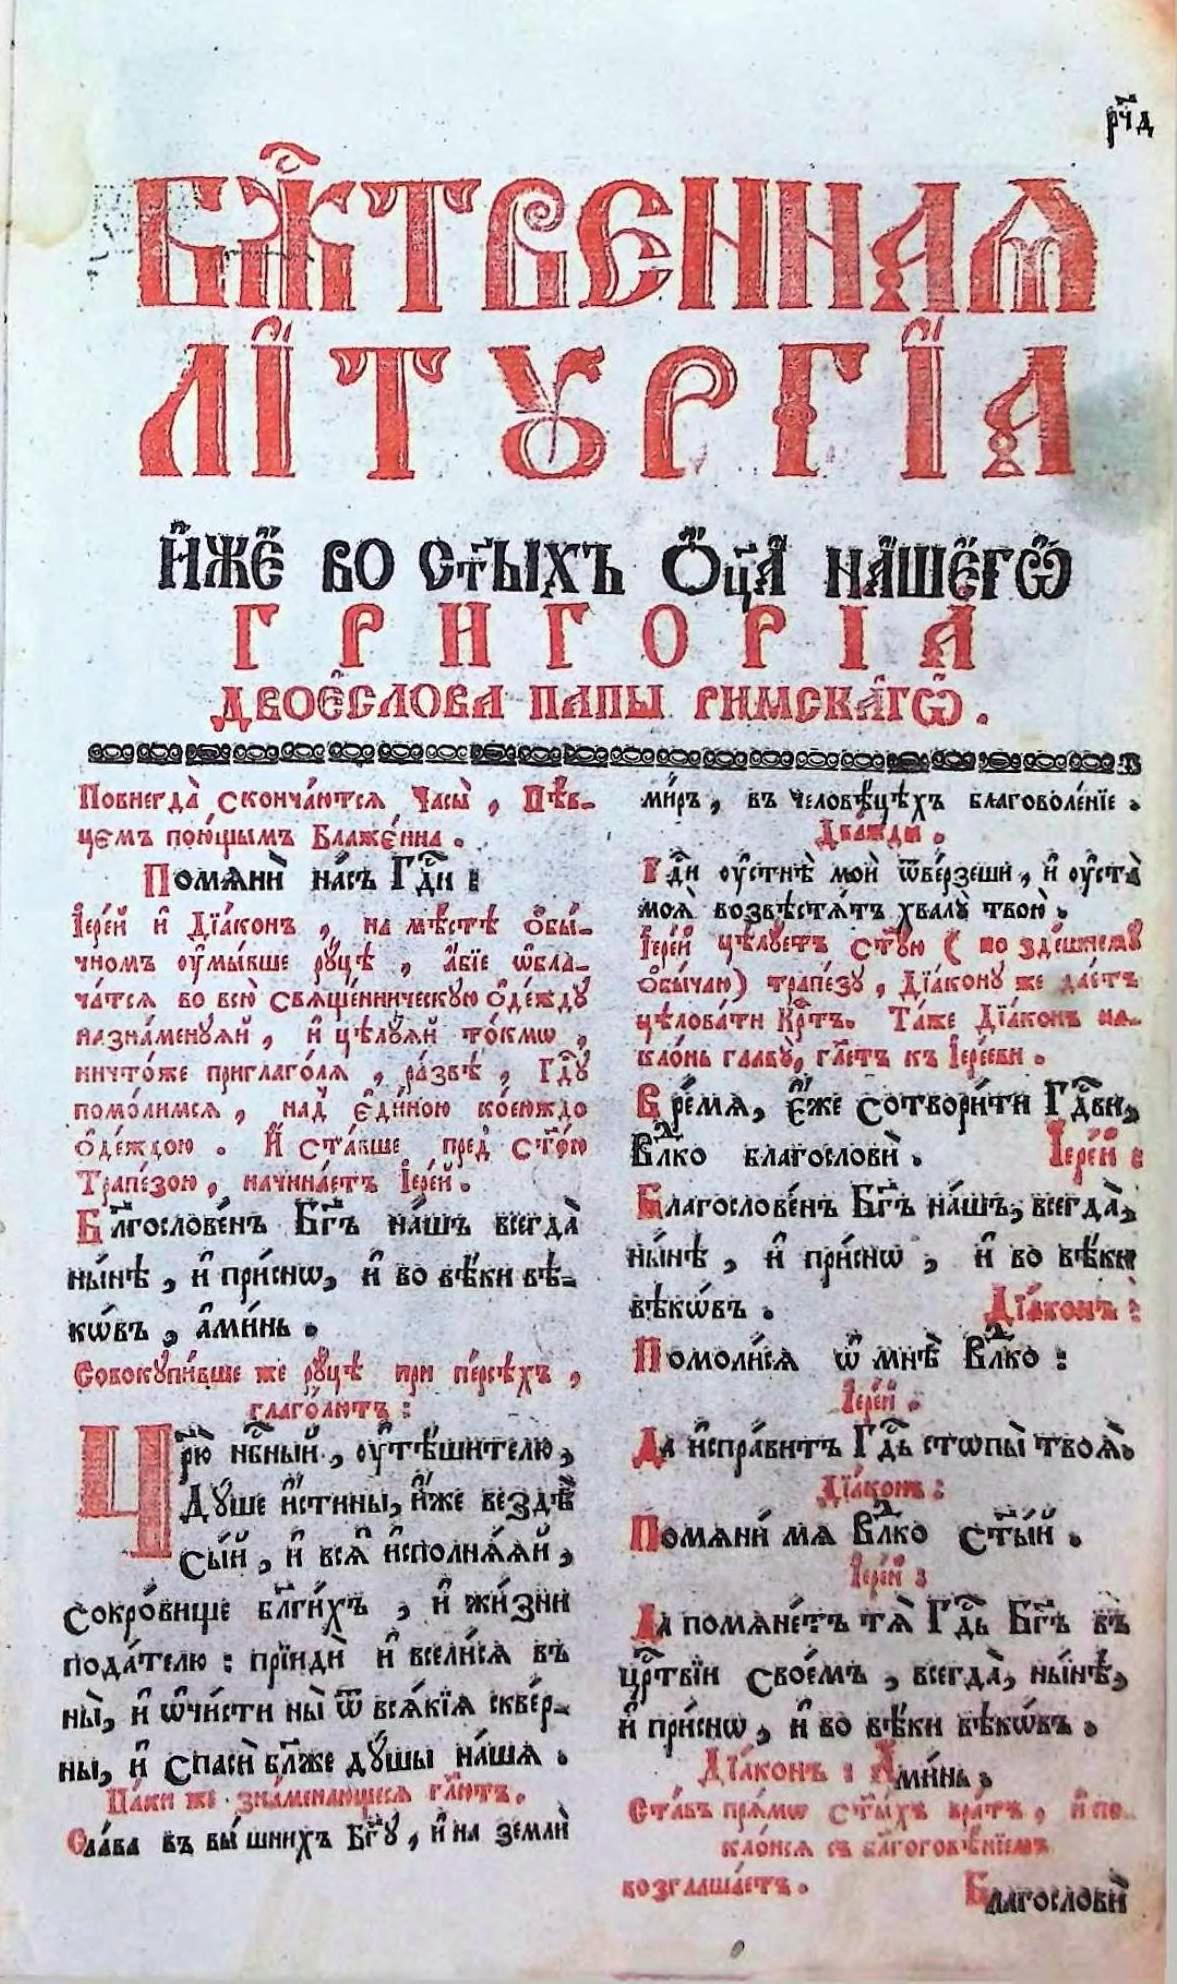 рч҃д
БЖ҃ТВЕННАѦ
ЛІ́ТꙊРГІ́А
И҆́ЖЕ ВО СТ҃ЫХЪ Ѻ҆ЦА҃ НА́ШЕГѠ
ГРИГОРІА
ДВОЕ҆СЛОВА ПАПЫ РИМСКАГѠ.
Повнегда̀ сконча́ютсѧ Часы̀, Пѣв-
цємъ пою́щымъ Блаже́нна.
Помѧнѝ на́съ Гдⷭ҇и :
Іере́й и҆ Дїа́конъ, на мѣ́стѣ ѻ҆бы́-
чномъ ᲂу҆мы́вше рꙋ́цѣ, а҆́бїе ѡ҆бла-
ча́тсѧ во всю̀ свѧще́нническꙋю ѻ҆де́ждꙋ
назна́менꙋѧй, и҆ цѣлꙋ́ѧй то́кмѡ,
ничто́же приглаго́лѧ, ра́звѣ, Гдⷭ҇ꙋ
помо́лимсѧ, над̾ є҆ди́ною ко́еюждо
ѻ҆де́ждою. И҆ ста́вше пред̾ ст҃о́ю
Трапе́зою, начина́етъ Іере́й.
Блⷢ҇ослове́нъ Бг҃ъ на́шъ всегда̀
ны́нѣ, и҆ при́снѡ, и҆ во вѣ́ки вѣ-
кѡ́въ, а҆ми́нь.
Совокꙋпи́вше же рꙋ́цѣ при пе́рсѣхъ,
глаго́лютъ :
Цр҃ю̀ нбⷭ҇ный, ᲂу҆тѣ́шителю,
Дꙋ́ше и҆́стины, и҆́же вездѣ̀
сы́й, и҆ всѧ̑ и҆сполнѧ́ѧй,
сокро́вище бл҃ги́хъ, и҆ жи́зни
пода́телю : прїидѝ и҆ всели́сѧ въ
ны̀, и҆ ѡ҆чи́сти ны̀ ѿ всѧ́кїѧ скве́р-
ны, и҆ спасѝ бл҃же дꙋ́шы на́шѧ.
Па́ки же знаменающесѧ гл҃ютъ.
Сла́ва въ вы́шнихъ Бг҃ꙋ, и҆ на землѝ
ми́ръ, въ человѣ́цѣхъ благоволе́нїе.
Два́жды.
Гдⷭ҇и ᲂу҆стнѣ̀ моѝ ѿве́рзеши, и҆ ᲂу҆ста̀
моѧ̀ возвѣстѧ́тъ хвалꙋ̀ твою̀.
Іере́й цѣлꙋ́етъ ст҃ꙋ́ю ( по зде́шнемꙋ
ѻ҆бы́чаю) трапе́зꙋ, Дїа́конꙋ же дае́тъ
цѣлова́ти Крⷭ҇тъ. Та́же Дїа́конъ на-
кло́нь главꙋ̀, гл҃етъ къ Іере́еви.
Вре́мѧ, є҆́же сотвори́ти Гдⷭ҇ви,
Влⷣко благословѝ. Іере́й :
Благослове́нъ Бг҃ъ на́шъ, всегда̀,
ны́нѣ, и҆ при́снѡ, и҆ во вѣ́ки
вѣкѡ́въ. Дїа́конъ :
Помоли́сѧ ѡ҆ мнѣ̀ Влⷣко :
Іере́й.
Да и҆спра́витъ Гдⷭ҇ь стѡпы̀ твоѧ̀.
Дїа́конъ :
Помѧнѝ мѧ Влⷣко ст҃ы́й.
Іере́й :
Да помѧне́тъ тѧ̀ Гдⷭ҇ь Бг҃ъ въ
црⷭ҇твїи свое́мъ, всегда̀, ны́нѣ,
и҆ при́снѡ, и҆ во вѣ́ки вѣкѡ́въ.
Дїа́конъ : Ами́нь.
Ста́въ прѧ́мѡ ст҃ы́хъ вра́тъ, и҆ по-
кло́нсѧ съ бл҃гоговѣ́нїемъ
возглаша́етъ. Благословѝ